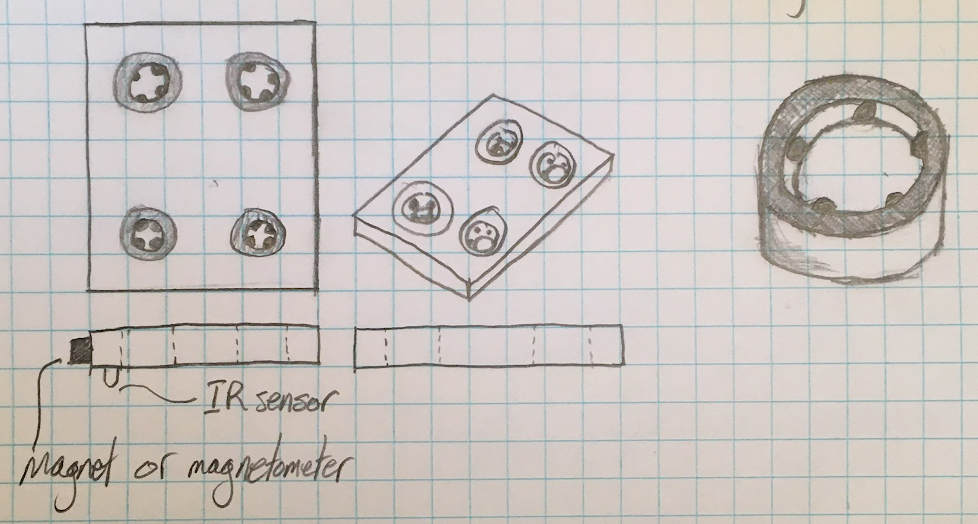 IR sensor
Magnet or magnetometer